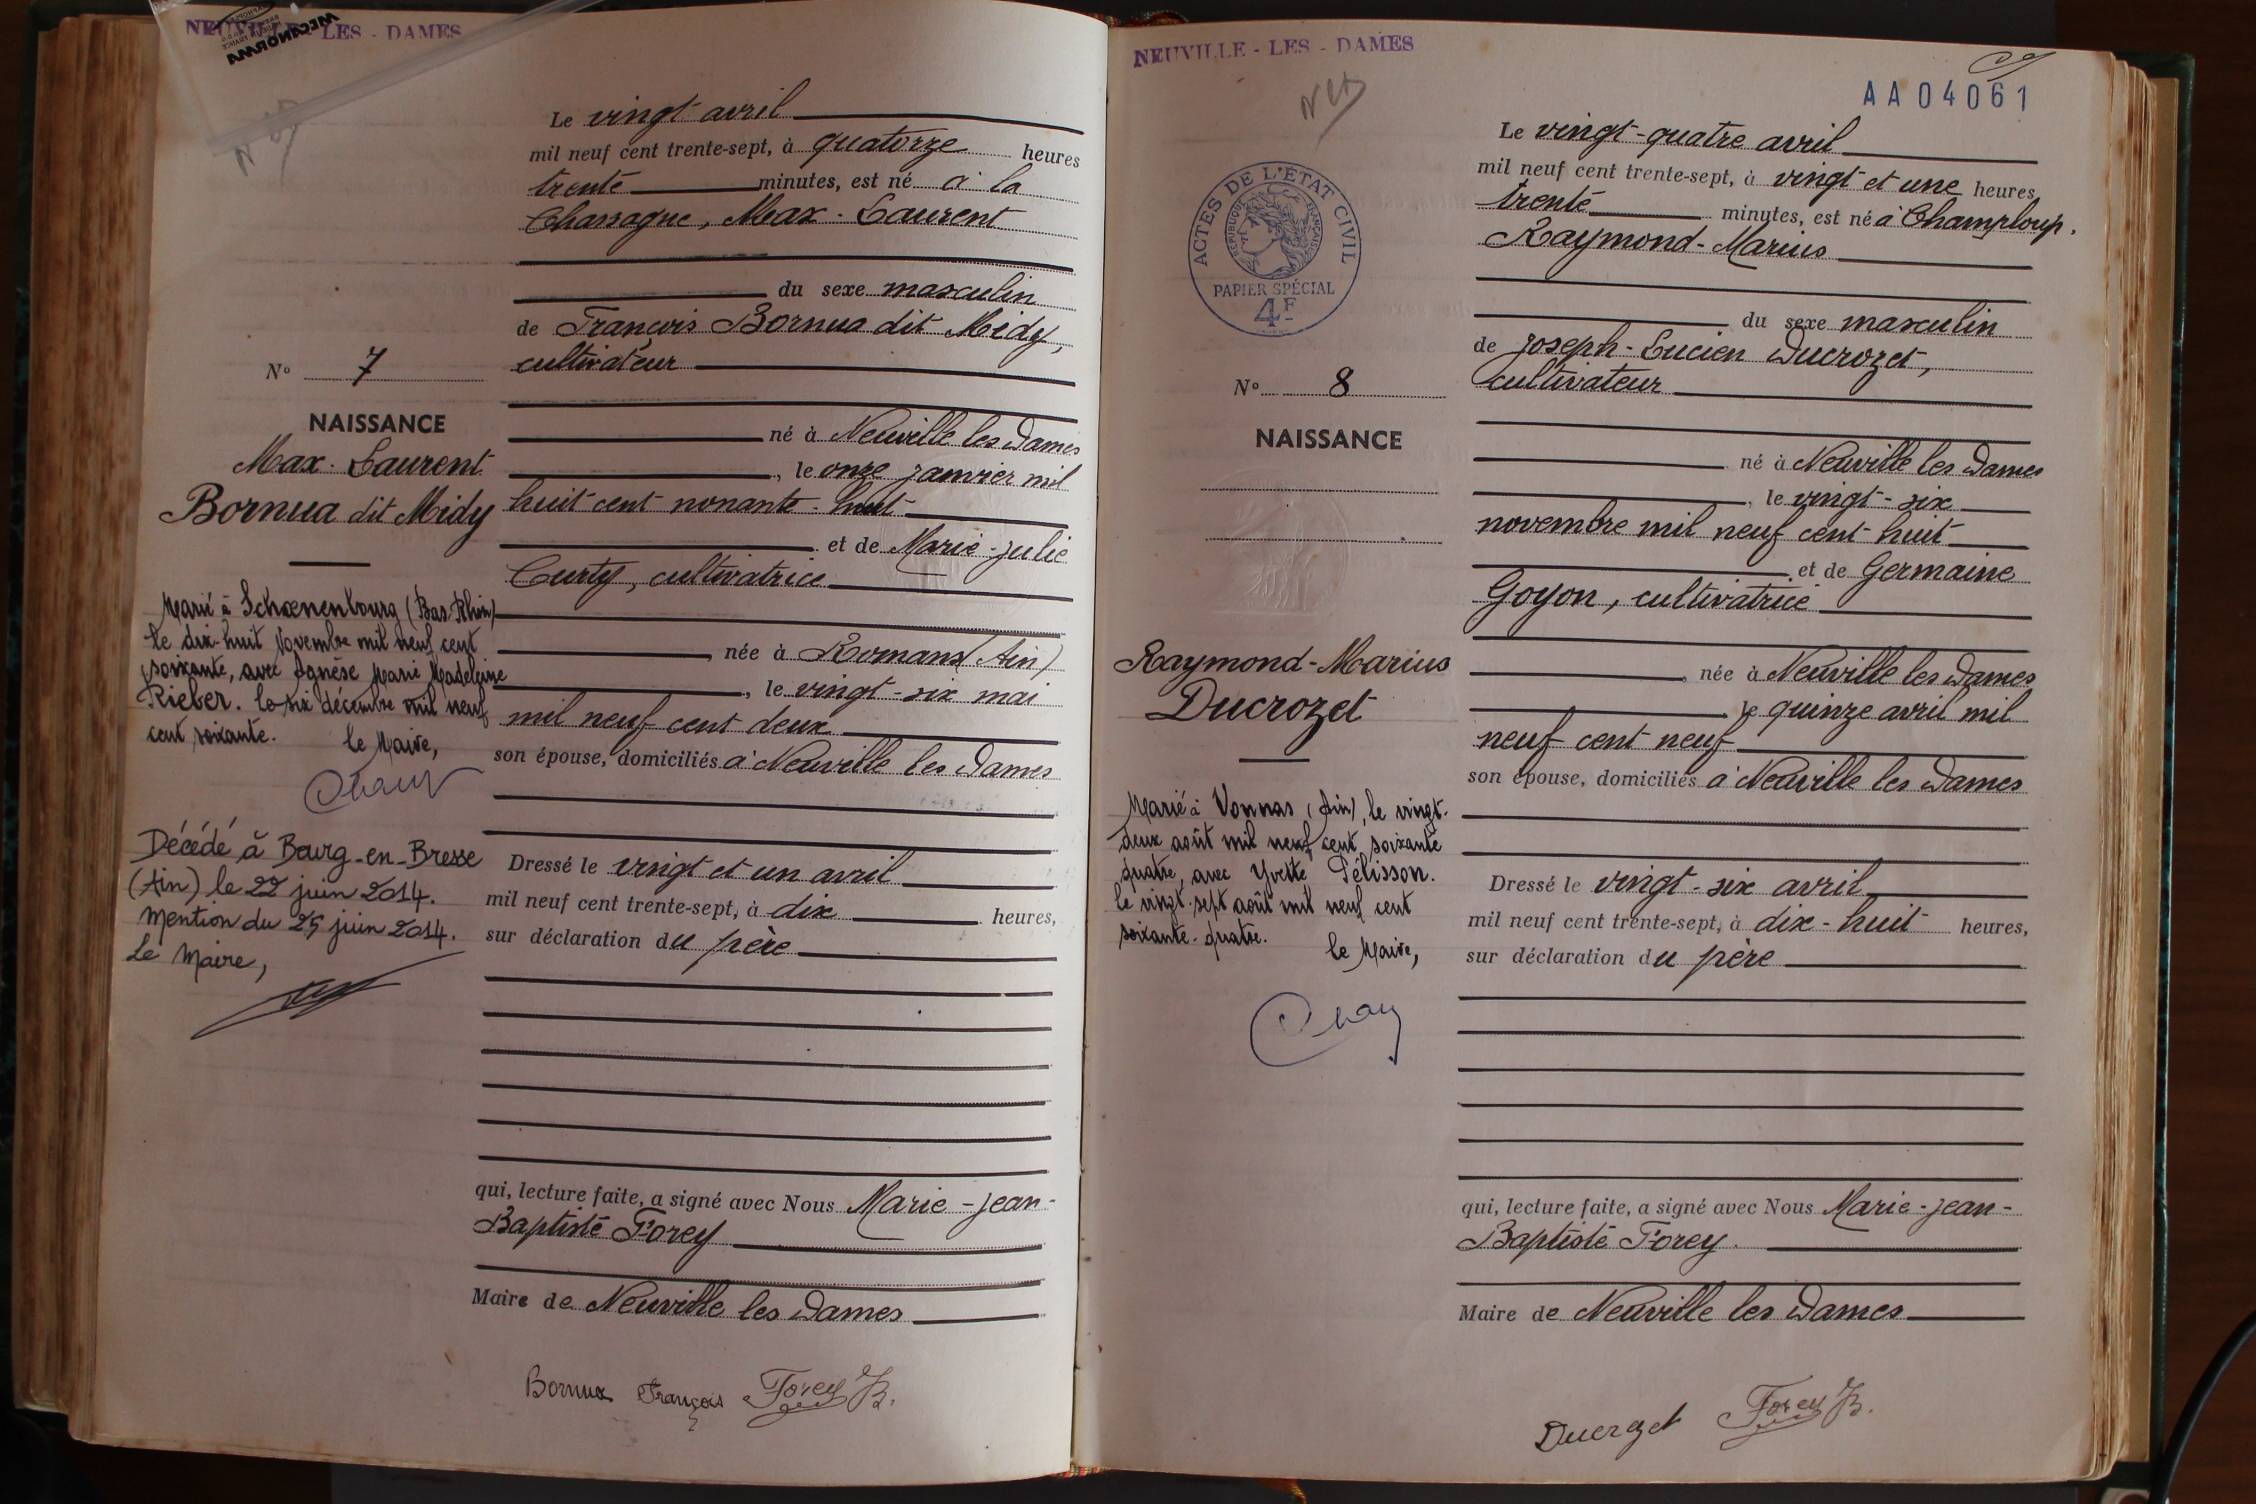 NEUVILLE - LES - DAMES
MECANORMA
Le vingt avril
mil neuf cent trente-sept, à quatorze heures
trente minutes, est né à la
Chassagne, Max-Laurent
du sexe masculin
de François Bornua dit Midy,
cultivateur
né à Neuville les Dames
, le onze janvier mil
huit cent nonante-huit
et de Marie-Julie
Curty, cultivatrice
née à Romans (Ain)
, le vingt-six mai
mil neuf cent deux
son épouse, domiciliés à Neuville les Dames
Dressé le vingt et un avril
mil neuf cent trente-sept, à dix heures,
sur déclaration du père
qui, lecture faite, a signé avec Nous Marie-Jean-
Baptiste Forey
Maire de Neuville les Dames
Bornua François Forey B.
No 7
NAISSANCE
Max-Laurent
Bornua dit Midy
Marié à Schœnenbourg (Bas-Rhin)
le dix-huit Novembre mil neuf cent
soixante, avec Agnèse Marie Madeleine
Rieber. le six décembre mil neuf
cent soixante. le Maire,
Décédé à Bourg-en-Bresse
(Ain) le 22 juin 2014.
Mention du 25 juin 2014.
Le Maire,
NEUVILLE - LES - DAMES
AA04061
ACTES DE L'ÉTAT CIVIL
RÉPUBLIQUE FRANÇAISE
PAPIER SPÉCIAL
4F
No 8
NAISSANCE
Raymond-Marius
Ducrozet
Marié à Vonnas (Ain), le vingt-
deux août mil neuf cent soixante
quatre, avec Yvette Pélisson.
le vingt-sept août mil neuf cent
soixante-quatre.
le Maire,
Le vingt-quatre avril
mil neuf cent trente-sept, à vingt et une heures
trente minutes, est né à Champloup.
Raymond-Marius
du sexe masculin
de Joseph-Lucien Ducrozet,
cultivateur
né à Neuville les Dames
, le vingt-six
novembre mil neuf cent huit
et de Germaine
Goyon, cultivatrice
née à Neuville les Dames
, le quinze avril mil
neuf cent neuf
son épouse, domiciliés à Neuville les Dames
Dressé le vingt-six avril
mil neuf cent trente-sept, à dix-huit heures,
sur déclaration du père
qui, lecture faite, a signé avec Nous Marie-Jean-
Baptiste Forey.
Maire de Neuville les Dames
Ducrozet Forey B.